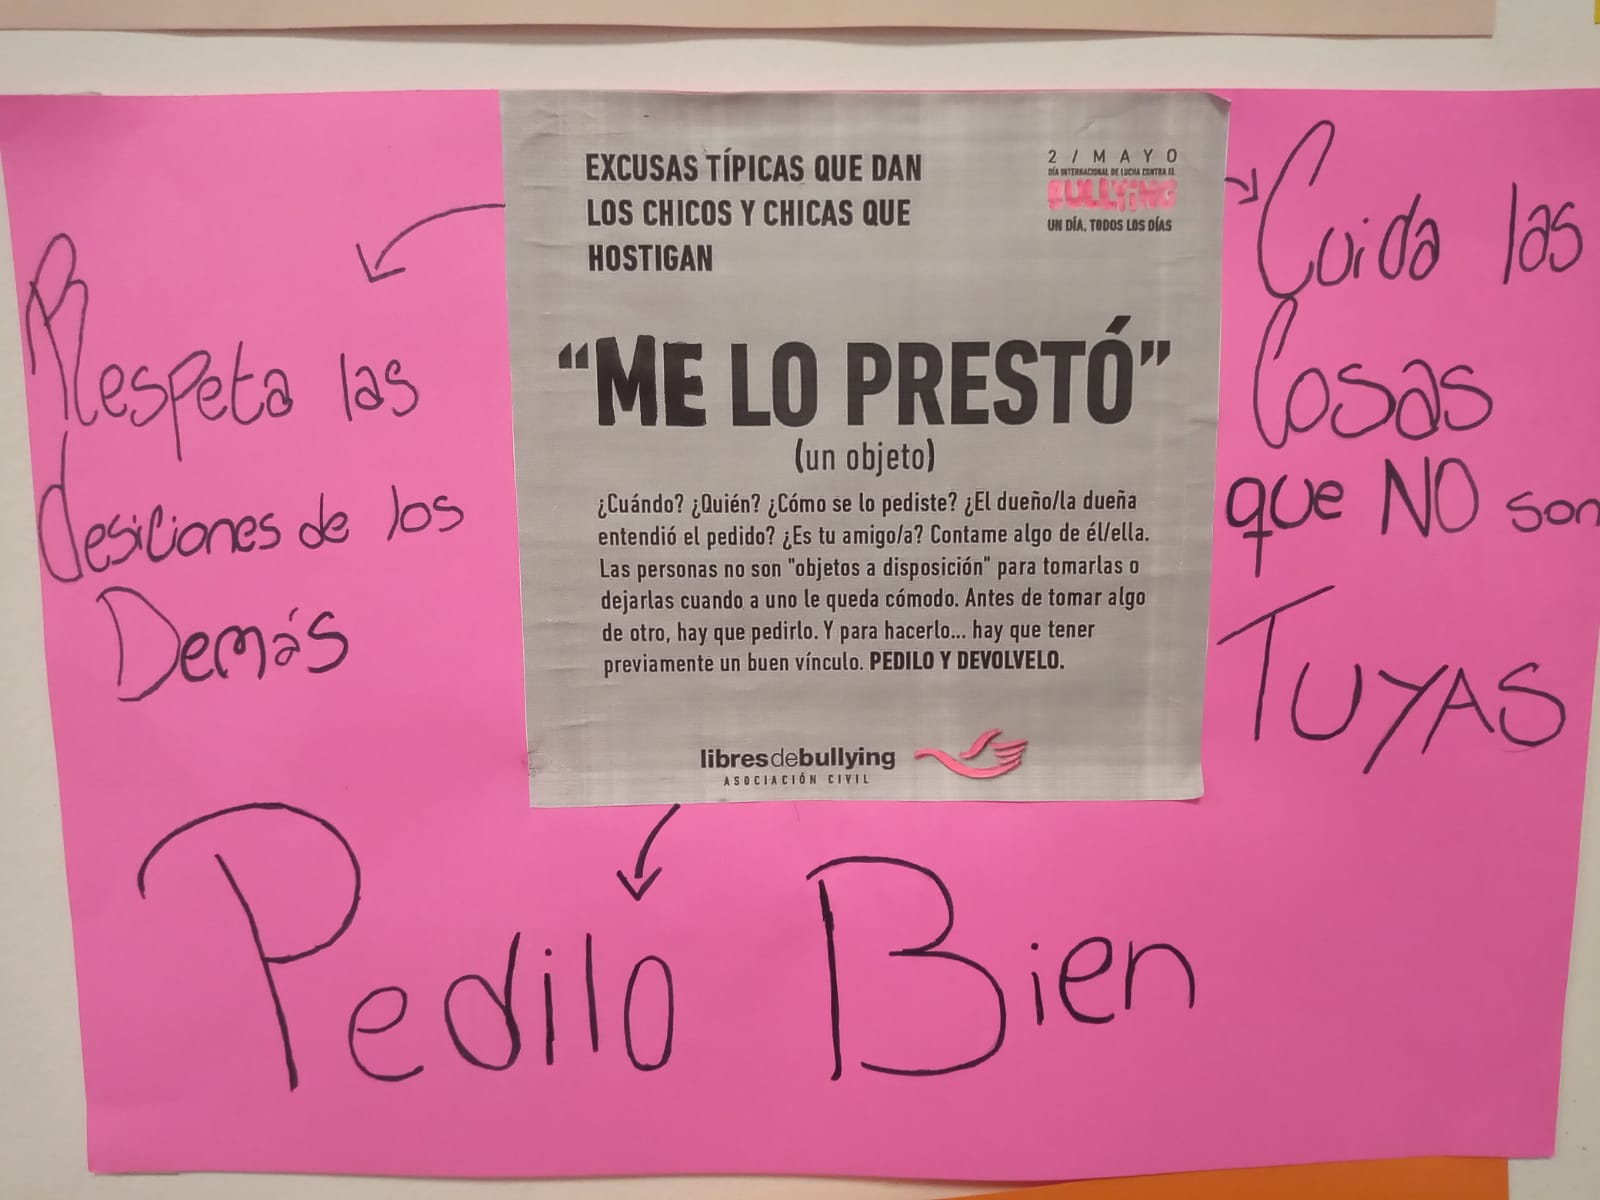 EXCUSAS TÍPICAS QUE DAN
LOS CHICOS Y CHICAS QUE
HOSTIGAN
2 / MAYO
DÍA INTERNACIONAL DE LUCHA CONTRA EL
BULLYING
UN DÍA, TODOS LOS DÍAS
“ME LO PRESTÓ”
(un objeto)
¿Cuándo? ¿Quién? ¿Cómo se lo pediste? ¿El dueño/la dueña
entendió el pedido? ¿Es tu amigo/a? Contame algo de él/ella.
Las personas no son "objetos a disposición" para tomarlas o
dejarlas cuando a uno le queda cómodo. Antes de tomar algo
de otro, hay que pedirlo. Y para hacerlo... hay que tener
previamente un buen vínculo. PEDILO Y DEVOLVELO.
libresdebullying
ASOCIACIÓN CIVIL
Respeta las
desiciones de los
Demás
Cuida las
Cosas
que NO son
TUYAS
Pedilo Bien